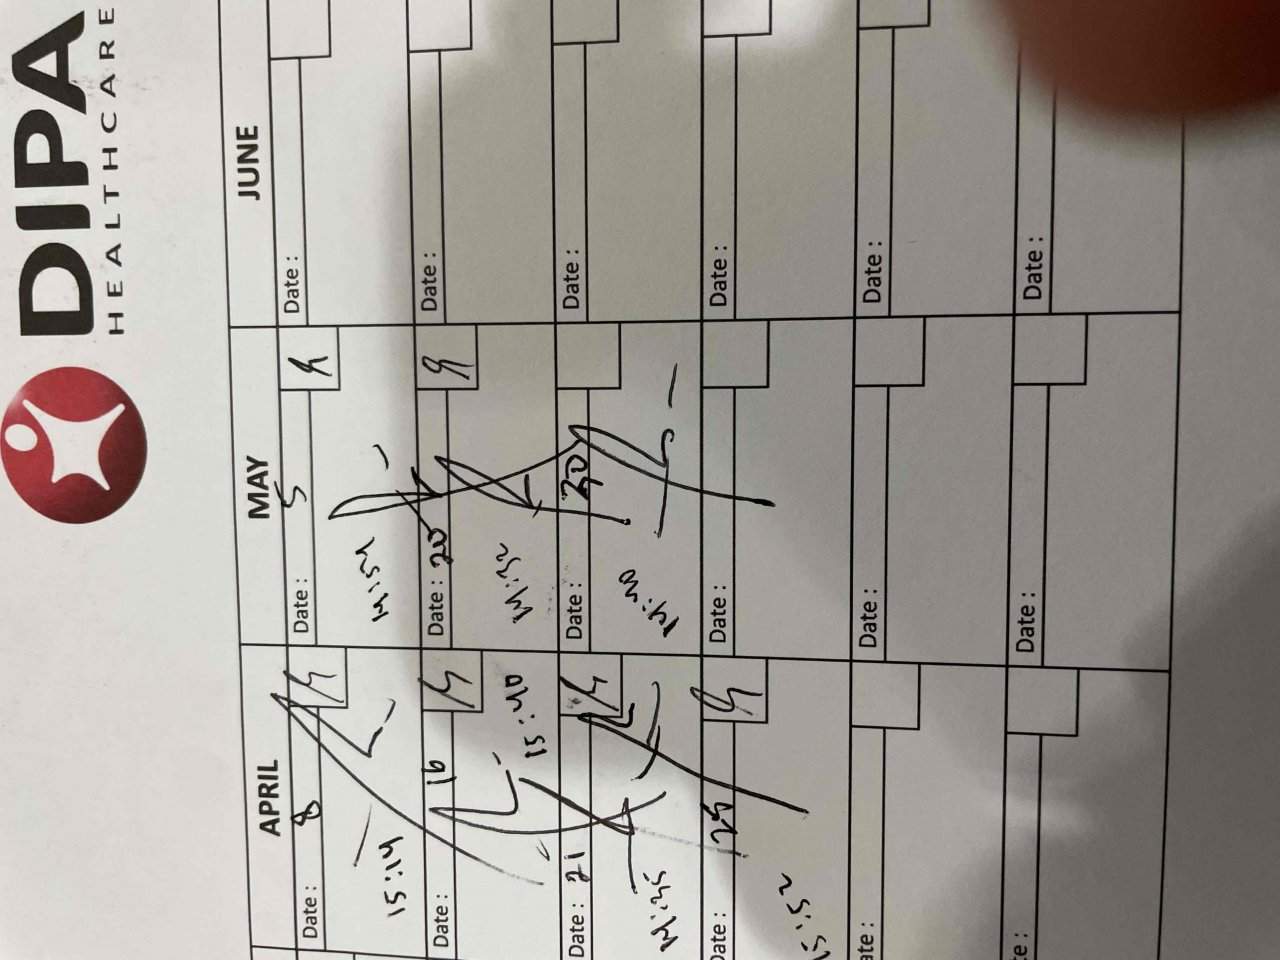 DIPA
HEALTHCARE
APRIL MAY JUNE
Date : 8
15:14
Date : 5
14:54
Date :
Date : 16
15:40
Date : 20
14:32
Date :
Date : 21
14:35
Date : 30
14:40
Date :
Date : 25
15:52
Date :
Date :
ate :
Date :
Date :
te :
Date :
Date :